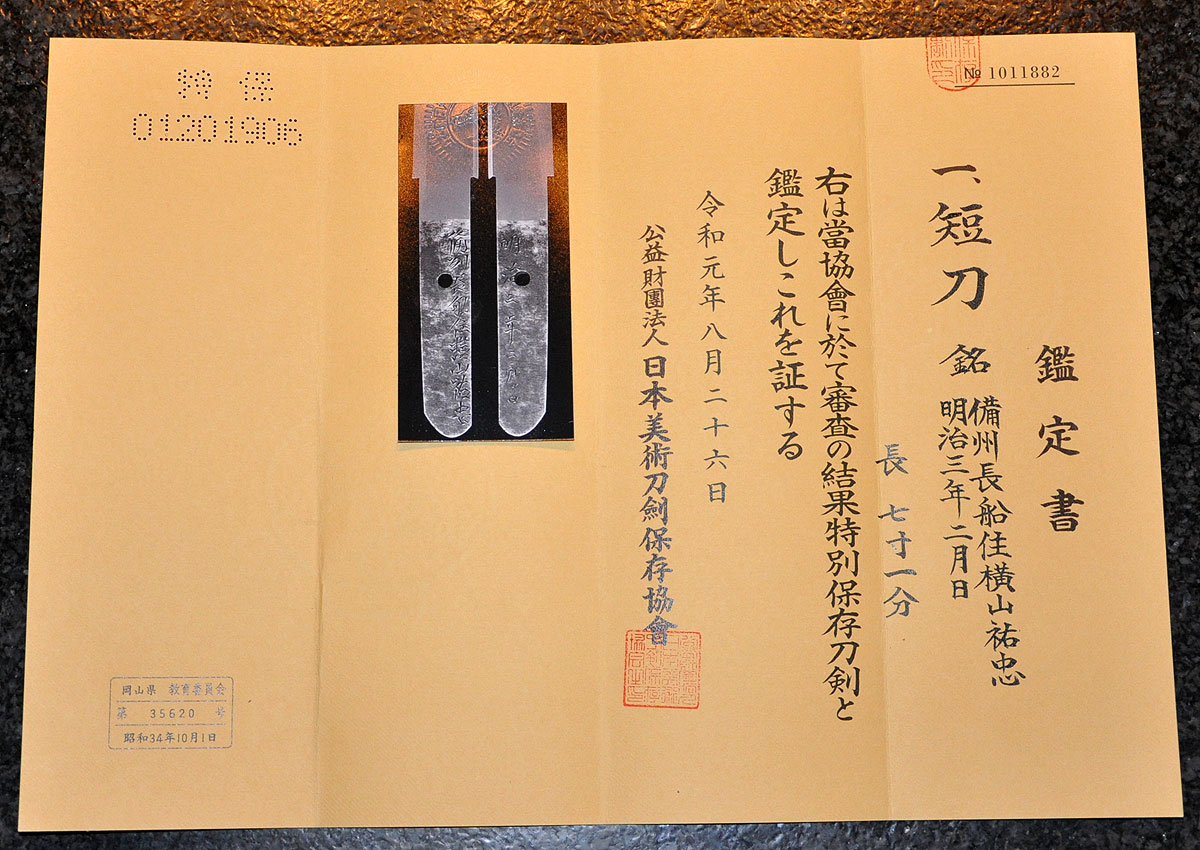 № 1011882
鑑定書
一、短刀 銘 備州長船住横山祐忠
明治三年二月日
長 七寸一分
右は當協會に於て審査の結果特別保存刀剣と
鑑定しこれを証する
令和元年八月二十六日
公益財團法人 日本美術刀劍保存協會
特 保
01201906
岡山県 教育委員会
第 35620 号
昭和34年10月1日